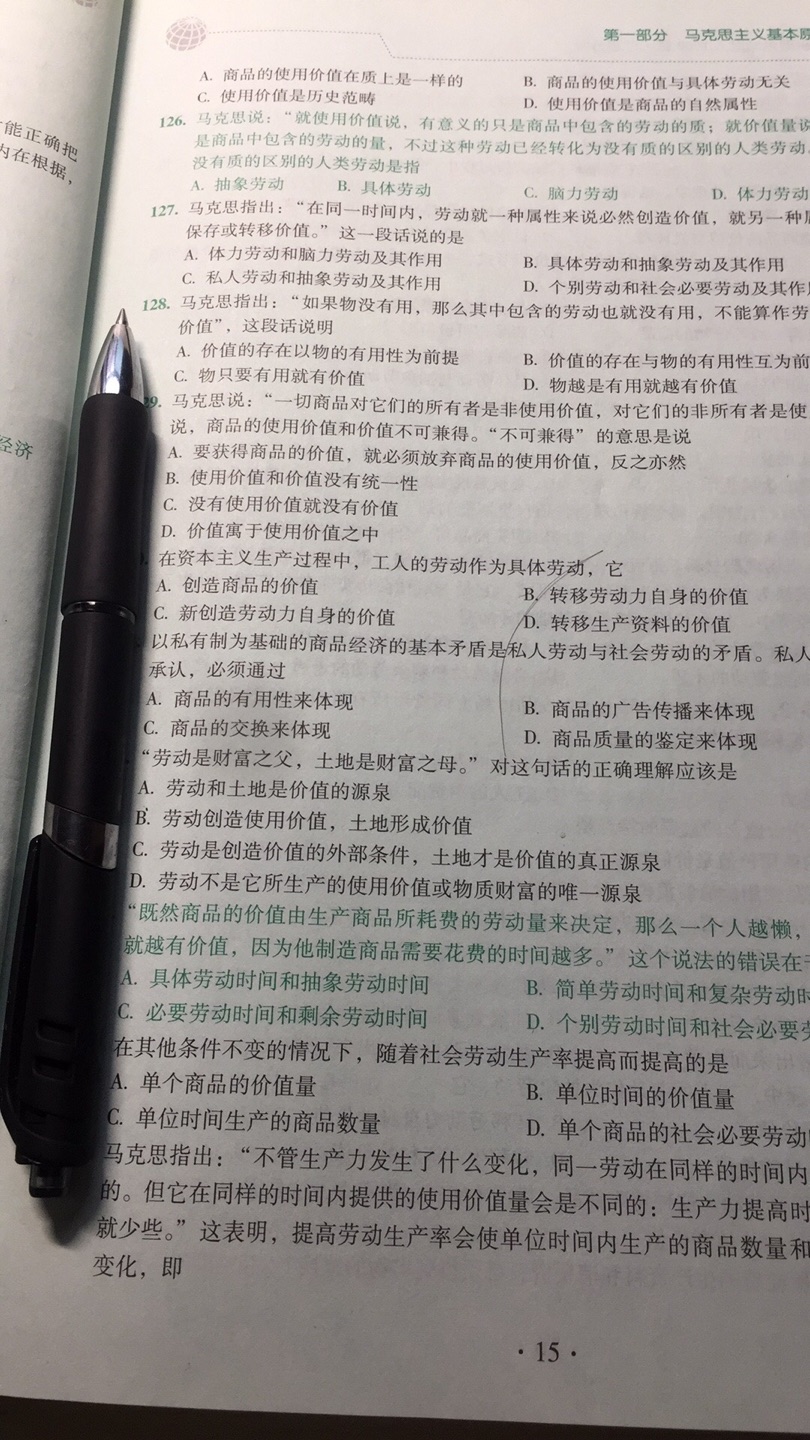 第一部分 马克思主义基本原
A. 商品的使用价值在质上是一样的 B. 商品的使用价值与具体劳动无关
C. 使用价值是历史范畴 D. 使用价值是商品的自然属性
126. 马克思说：“就使用价值说，有意义的只是商品中包含的劳动的质；就价值量说
是商品中包含的劳动的量，不过这种劳动已经转化为没有质的区别的人类劳动
没有质的区别的人类劳动是指
A. 抽象劳动 B. 具体劳动 C. 脑力劳动 D. 体力劳动
127. 马克思指出：“在同一时间内，劳动就一种属性来说必然创造价值，就另一种
保存或转移价值。”这一段话说的是
A. 体力劳动和脑力劳动及其作用 B. 具体劳动和抽象劳动及其作用
C. 私人劳动和抽象劳动及其作用 D. 个别劳动和社会必要劳动及其作
128. 马克思指出：“如果物没有用，那么其中包含的劳动也就没有用，不能算作劳
价值”，这段话说明
A. 价值的存在以物的有用性为前提 B. 价值的存在与物的有用性互为前
C. 物只要有用就有价值 D. 物越是有用就越有价值
9. 马克思说：“一切商品对它们的所有者是非使用价值，对它们的非所有者是使
说，商品的使用价值和价值不可兼得。“不可兼得”的意思是说
A. 要获得商品的价值，就必须放弃商品的使用价值，反之亦然
B. 使用价值和价值没有统一性
C. 没有使用价值就没有价值
D. 价值寓于使用价值之中
在资本主义生产过程中，工人的劳动作为具体劳动，它
A. 创造商品的价值 B. 转移劳动力自身的价值
C. 新创造劳动力自身的价值 D. 转移生产资料的价值
以私有制为基础的商品经济的基本矛盾是私人劳动与社会劳动的矛盾。私人
承认，必须通过
A. 商品的有用性来体现 B. 商品的广告传播来体现
C. 商品的交换来体现 D. 商品质量的鉴定来体现
“劳动是财富之父，土地是财富之母。”对这句话的正确理解应该是
A. 劳动和土地是价值的源泉
B. 劳动创造使用价值，土地形成价值
C. 劳动是创造价值的外部条件，土地才是价值的真正源泉
D. 劳动不是它所生产的使用价值或物质财富的唯一源泉
“既然商品的价值由生产商品所耗费的劳动量来决定，那么一个人越懒，
就越有价值，因为他制造商品需要花费的时间越多。”这个说法的错误在于
A. 具体劳动时间和抽象劳动时间 B. 简单劳动时间和复杂劳动时
C. 必要劳动时间和剩余劳动时间 D. 个别劳动时间和社会必要劳
在其他条件不变的情况下，随着社会劳动生产率提高而提高的是
A. 单个商品的价值量 B. 单位时间的价值量
C. 单位时间生产的商品数量 D. 单个商品的社会必要劳动
马克思指出：“不管生产力发生了什么变化，同一劳动在同样的时间内
的。但它在同样的时间内提供的使用价值量会是不同的：生产力提高时
就少些。”这表明，提高劳动生产率会使单位时间内生产的商品数量和
变化，即
· 15 ·
能正确把
内在根据，
经济